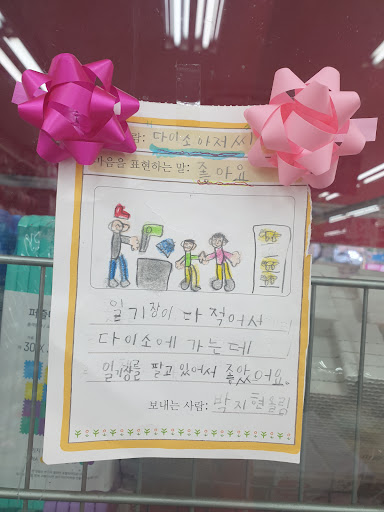 람: 다이소아저씨
마음을 표현하는 말: 좋아요
일기장이 다 적어서
다이소에 가는데
일기장를 팔고 있어서 좋았어요.
보내는 사람: 박지현올림